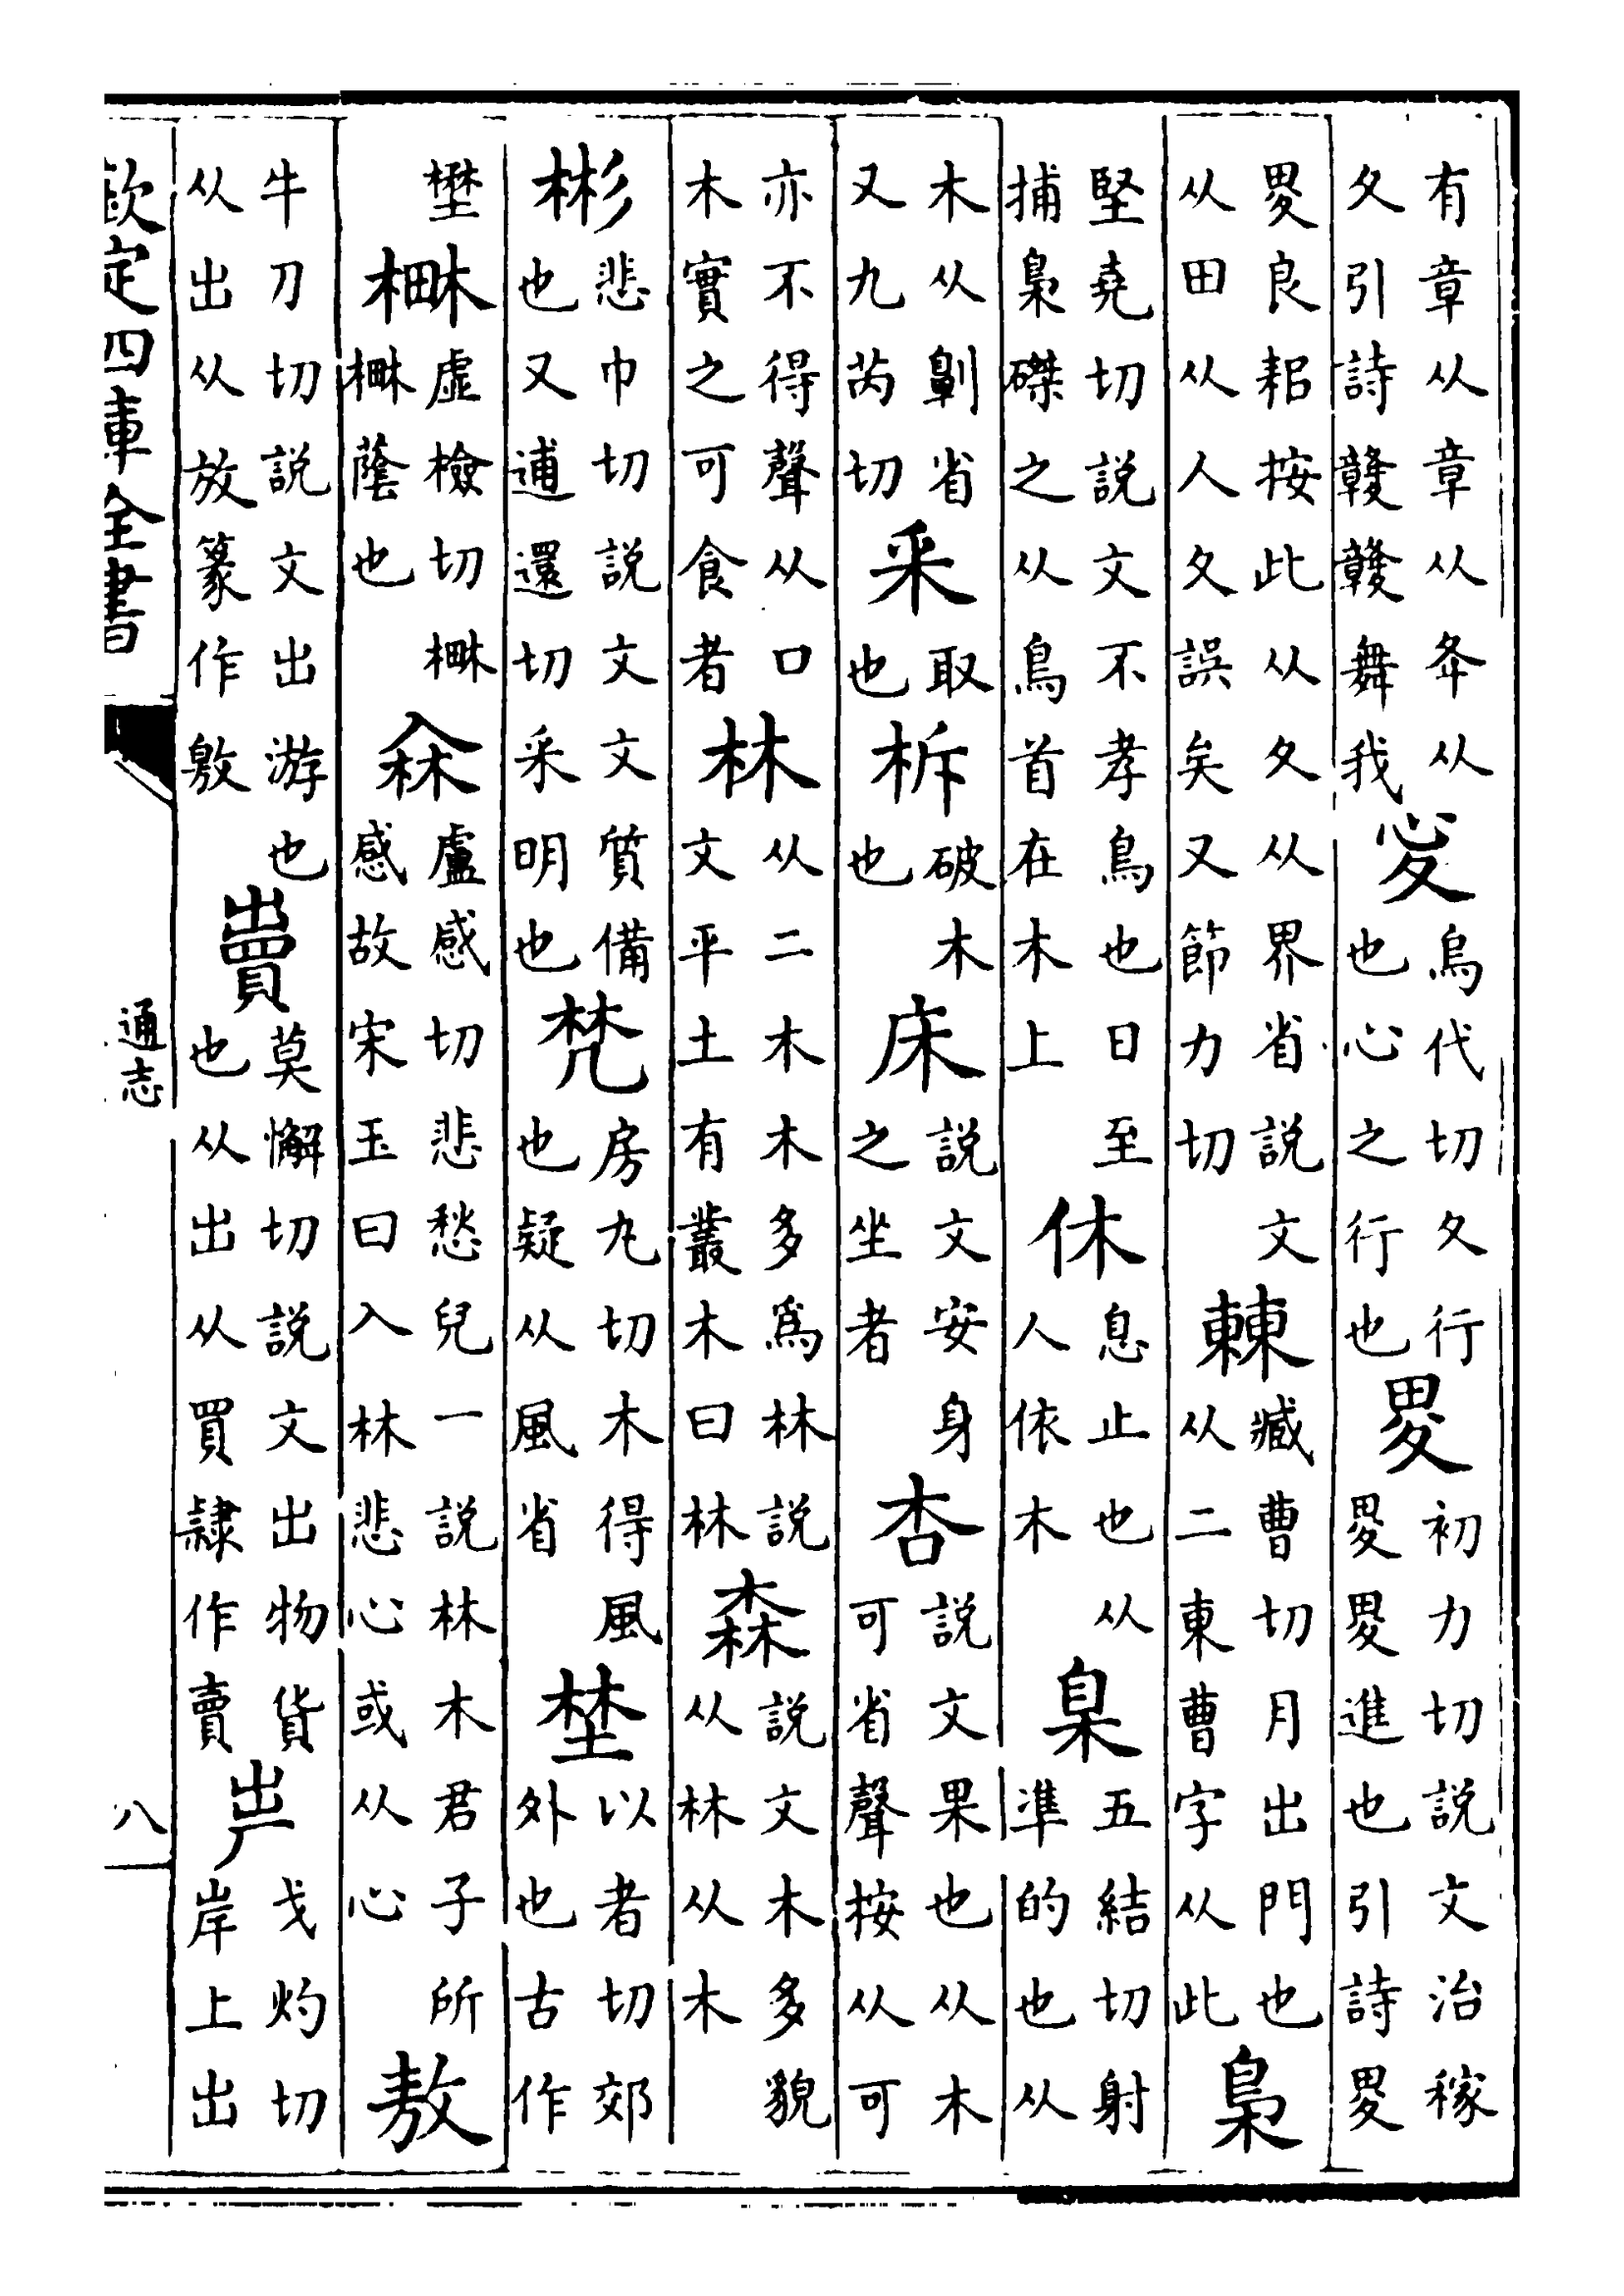 有章从章从夅从
夂引詩贛贛舞我
㤅
烏代切夂行
也心之行也
畟
初力切說文治稼
畟畟進也引詩畟
畟良耜按此从夂从界省說文
从田从人夂誤矣又節力切
㯥
臧曹切月出門也
从二東曹字从此
梟
堅堯切說文不孝鳥也日至
捕梟磔之从鳥首在木上
休
息止也从
人依木
臬
五結切射
凖的也从
木从劓省
又九芮切
采
取
也
柝
破木
也
床
說文安身
之坐者
杏
說文果也从木
可省聲按从可
亦不得聲从口
木實之可食者
林
从二木木多爲林說
文平土有叢木曰林
森
說文木多貌
从林从木
彬
悲巾切說文文質備
也又逋還切采明也
梵
房凡切木得風
也疑从風省
埜
以者切郊
外也古作
虛檢切
蔭也
盧感切悲愁皃一說林木君子所
感故宋玉曰入林悲心或从心
敖
牛刀切說文出游也
从出从放篆作敫
賣
莫懈切說文出物貨
也从出从買隸作賣
戈灼切
岸上出
欽定四庫全書
通志
八